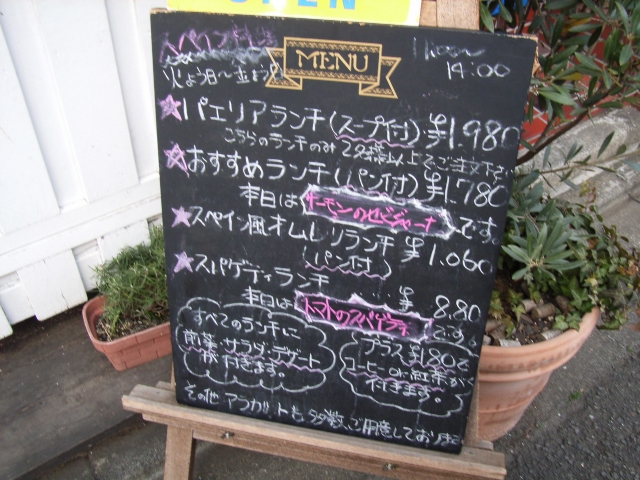 OPEN
スペイン料理
MENU
11:00〜
14:00
火よう日〜金よう日
パエリアランチ(スープ付) ¥1.980
こちらのランチのみ 2名様以上でご注文下さい
おすすめランチ(パン付) ¥1.780
本日は サーモンのセビジャーナ です。
スペイン風オムレツランチ ¥1.060
(パン付)
スパゲティランチ
本日は トマトのスパゲティ ¥8.80 です。
すべてのランチに
前菜・サラダ・デザート
が付きます。
プラス¥180で
コーヒー or 紅茶がつ
付きます。
その他 アラカルトも多数、ご用意しております